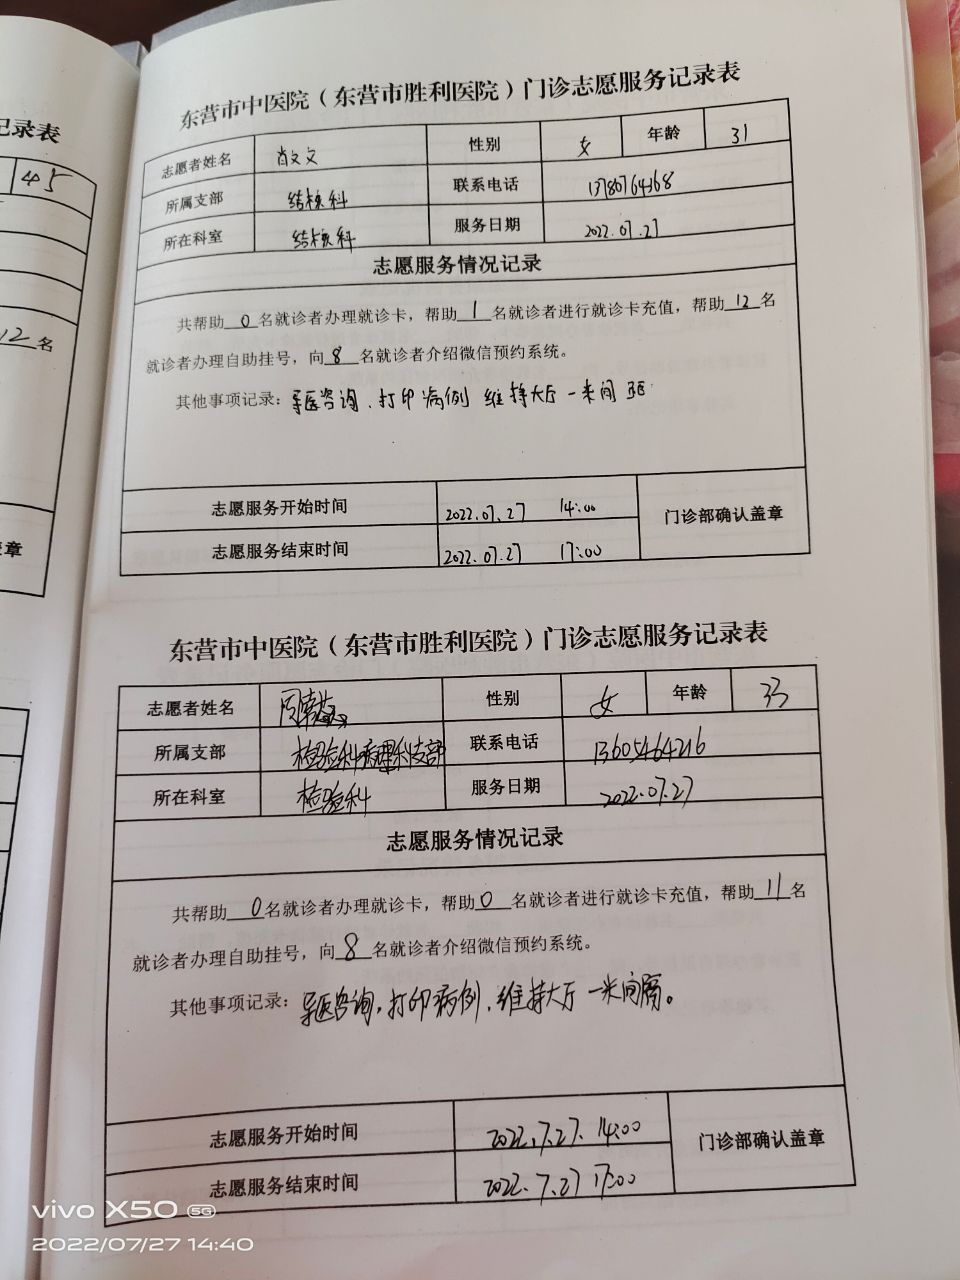 记录表
45
12名
章
东营市中医院（东营市胜利医院）门诊志愿服务记录表
志愿者姓名 肖文文 性别 女 年龄 31
所属支部 结核科 联系电话
所在科室 结核科 服务日期 2022.07.27
志愿服务情况记录
共帮助0名就诊者办理就诊卡，帮助1名就诊者进行就诊卡充值，帮助12名
就诊者办理自助挂号，向8名就诊者介绍微信预约系统。
其他事项记录：导医咨询、打印病例 维持大厅一米间距
志愿服务开始时间 2022.07.27 14:00 门诊部确认盖章
志愿服务结束时间 2022.07.27 17:00
东营市中医院（东营市胜利医院）门诊志愿服务记录表
志愿者姓名 性别 女 年龄 33
所属支部 检验科病理科支部 联系电话 13605464216
所在科室 检验科 服务日期 2022.07.27
志愿服务情况记录
共帮助0名就诊者办理就诊卡，帮助0名就诊者进行就诊卡充值，帮助11名
就诊者办理自助挂号，向8名就诊者介绍微信预约系统。
其他事项记录：导医咨询，打印病例，维持大厅一米间隔。
志愿服务开始时间 2022.7.27. 14:00 门诊部确认盖章
志愿服务结束时间 2022.7.27 17:00
vivo X50 5G
2022/07/27 14:40